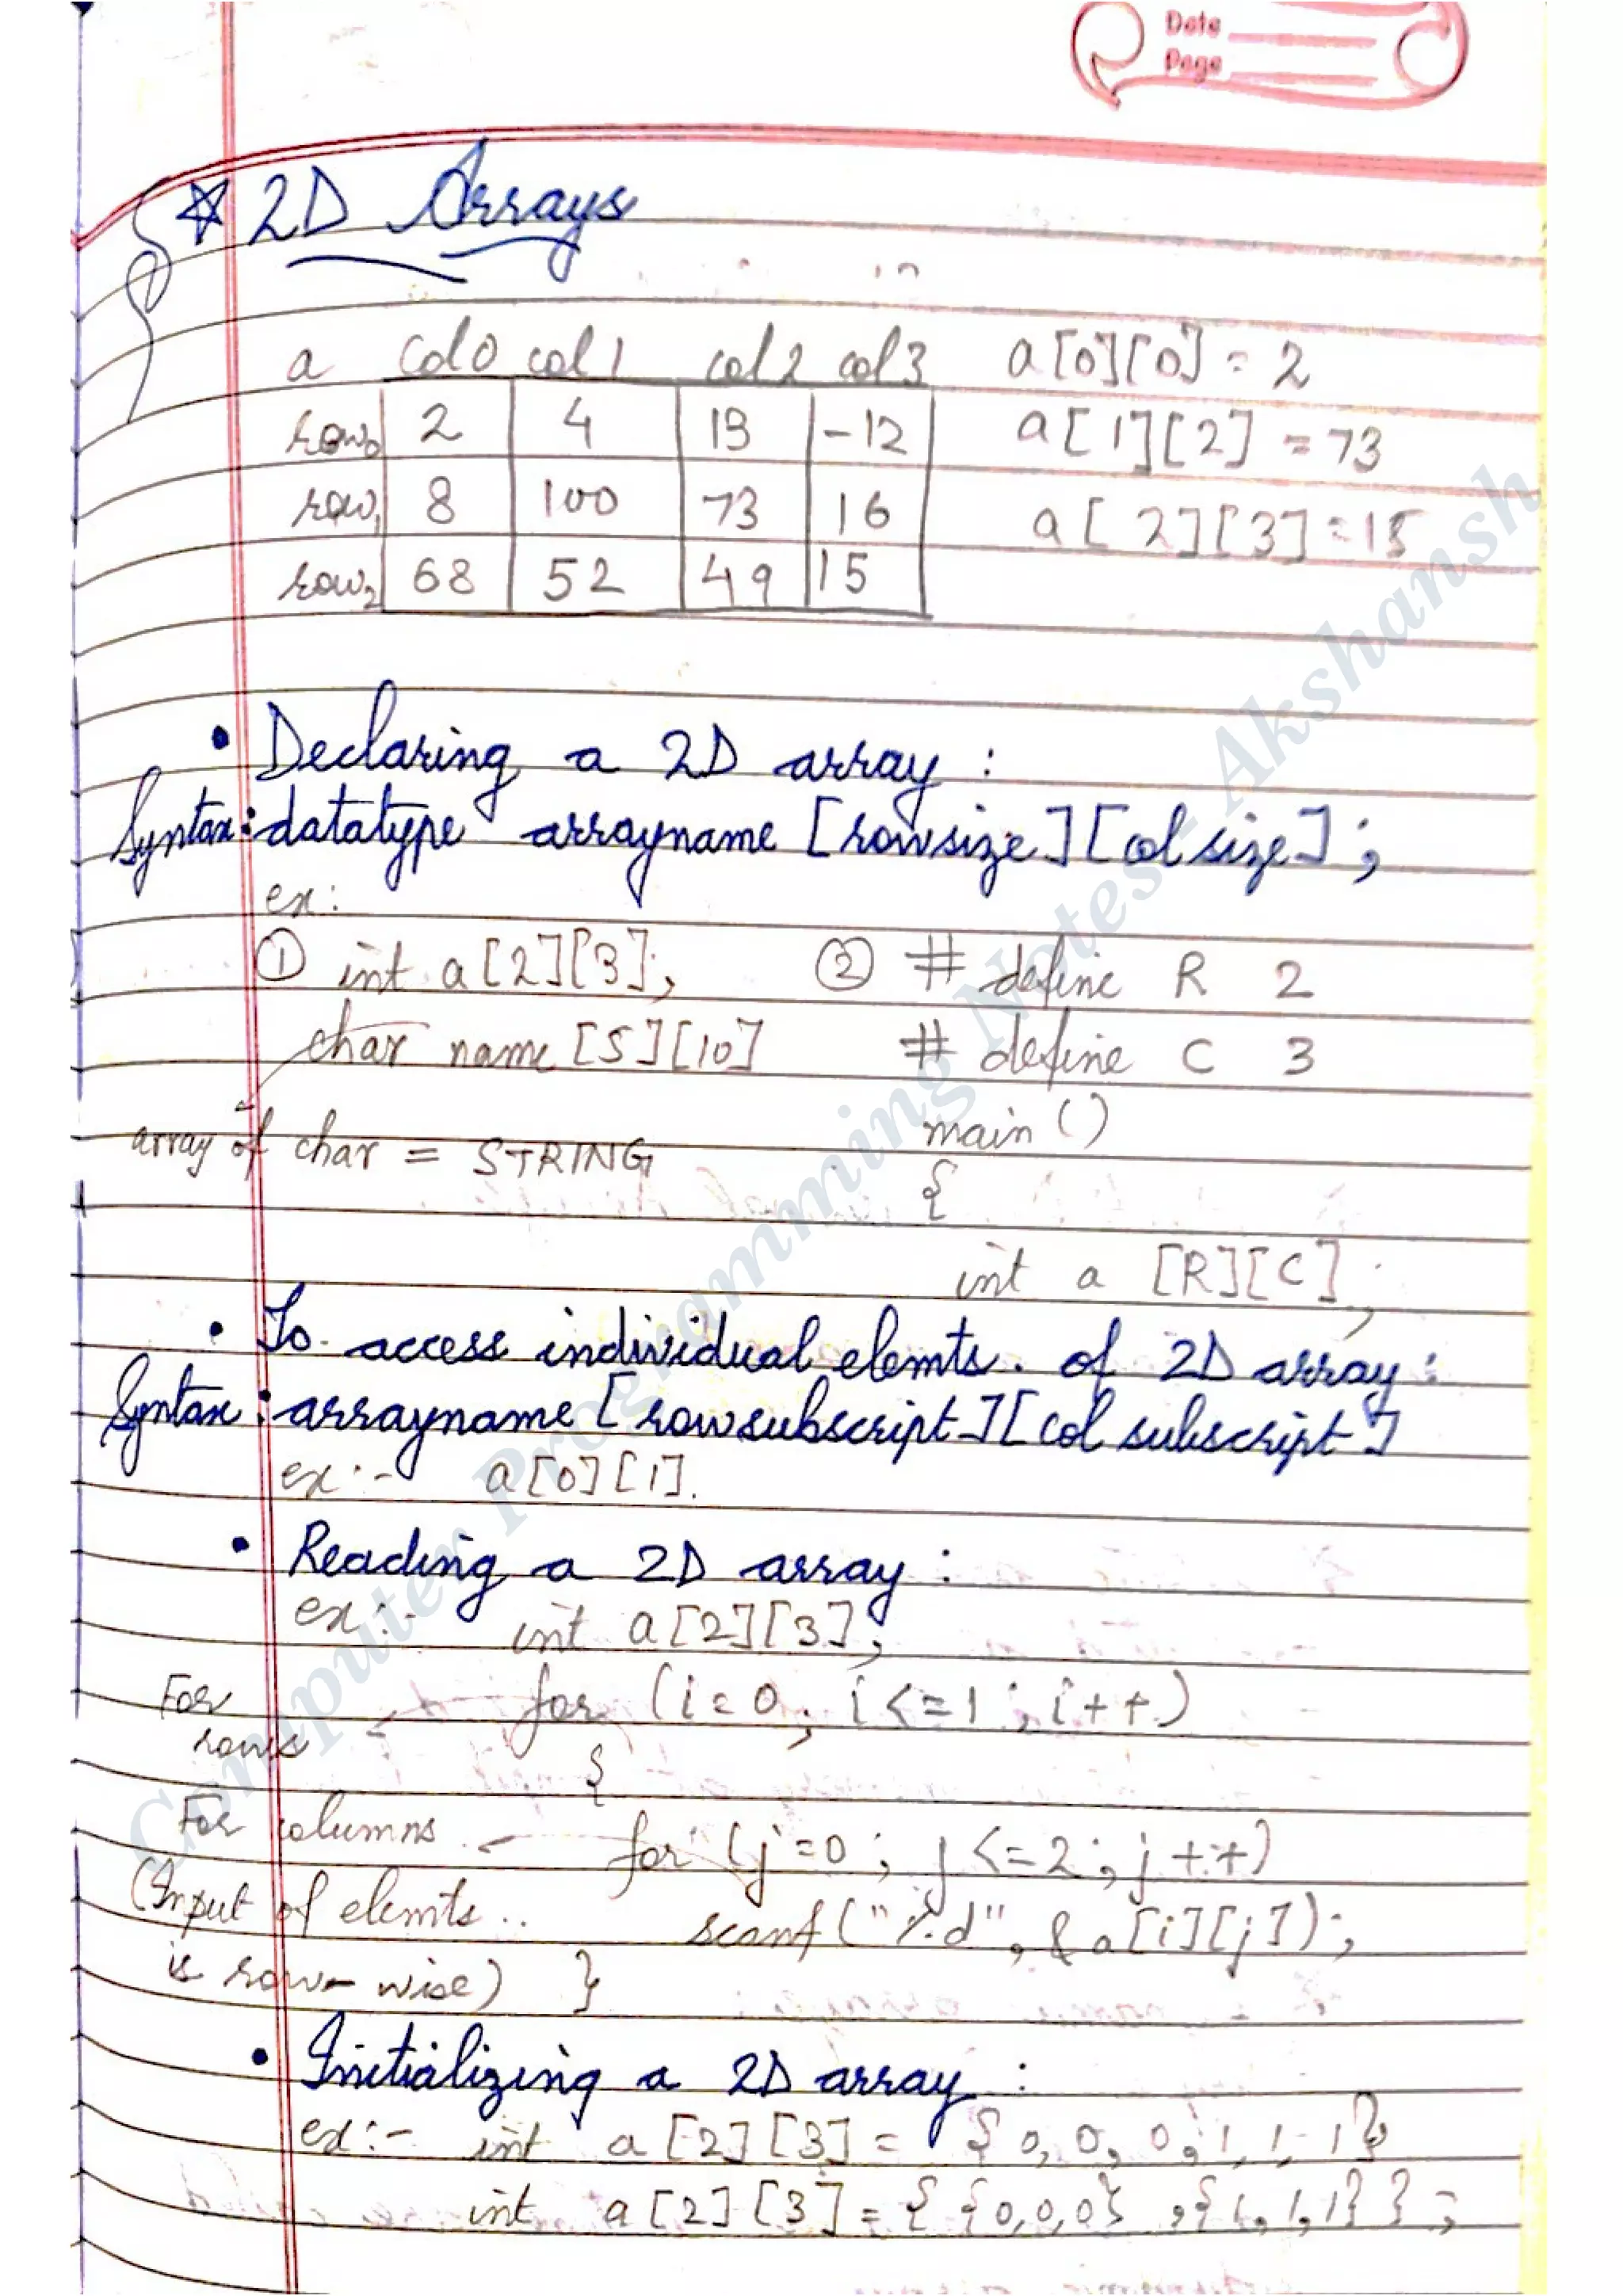 Date
Page
☆ 2D Arrays
a col0 col1 col2 col3 a[0][0] = 2
row0 2 4 13 -12 a[1][2] = 73
row1 8 100 73 16 a[2][3] = 15
row2 68 52 49 15
• Declaring a 2D array :
Syntax: datatype arrayname [rowsize][colsize];
ex:
① int a[2][3]; ② # define R 2
char name[5][10] # define C 3
array of char = STRING main()
{
int a [R][C];
• To access individual elemts. of 2D array :
Syntax : arrayname [rowsubscript][col subscript]
ex :- a[0][1].
• Reading a 2D array :
ex :- int a[2][3];
For rows ← for (i=0; i<=1; i++)
{
For columns ← for (j=0; j<=2; j++)
(Input of elemts.. scanf("%d", &a[i][j]);
is row-wise) }
• Initializing a 2D array :
ex :- int a[2][3] = {0,0,0,1,1,1}
int a[2][3] = {{0,0,0},{1,1,1}};
Computer Programming Notes - Akshansh